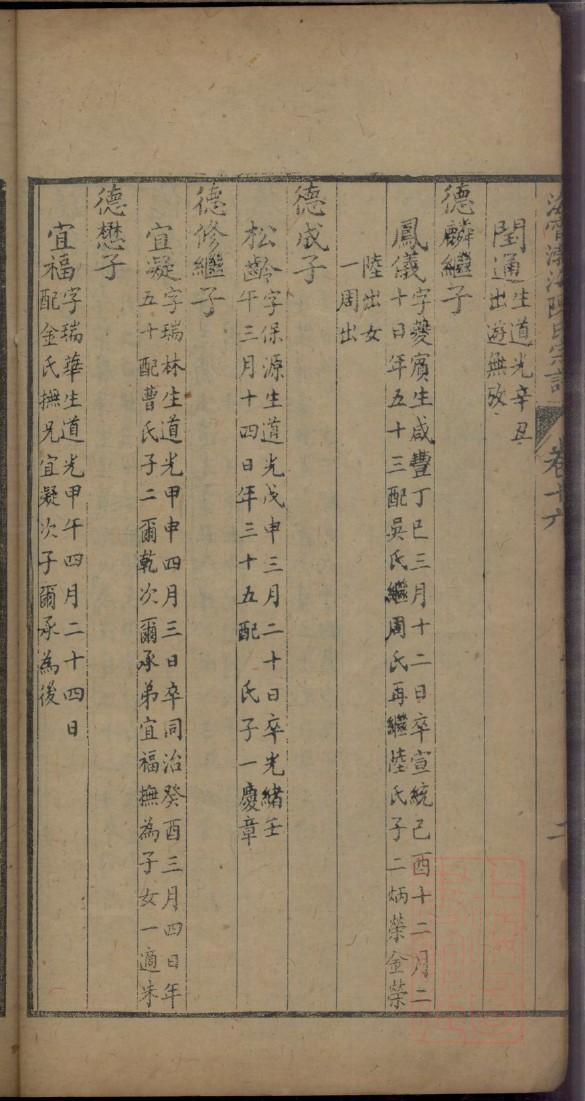 陳氏宗譜
卷十六
閏通生道光辛丑
出遊無攷
德麟繼子
鳳儀字夔賓生咸豐丁巳三月十二日卒宣統己酉十二月二
十日年五十三配吳氏繼周氏再繼陸氏子二炳榮金榮
陸出女
一周出
德成子
松齡字保源生道光戊申三月二十日卒光緒壬
午三月十四日年三十五配 氏子一慶章
德修繼子
宜凝字瑞林生道光甲申四月三日卒同治癸酉三月四日年
五十配曹氏子二爾乾次爾承弟宜福撫為子女一適朱
德懋子
宜福字瑞華生道光甲午四月二十四日
配金氏撫兄宜凝次子爾承為後
二